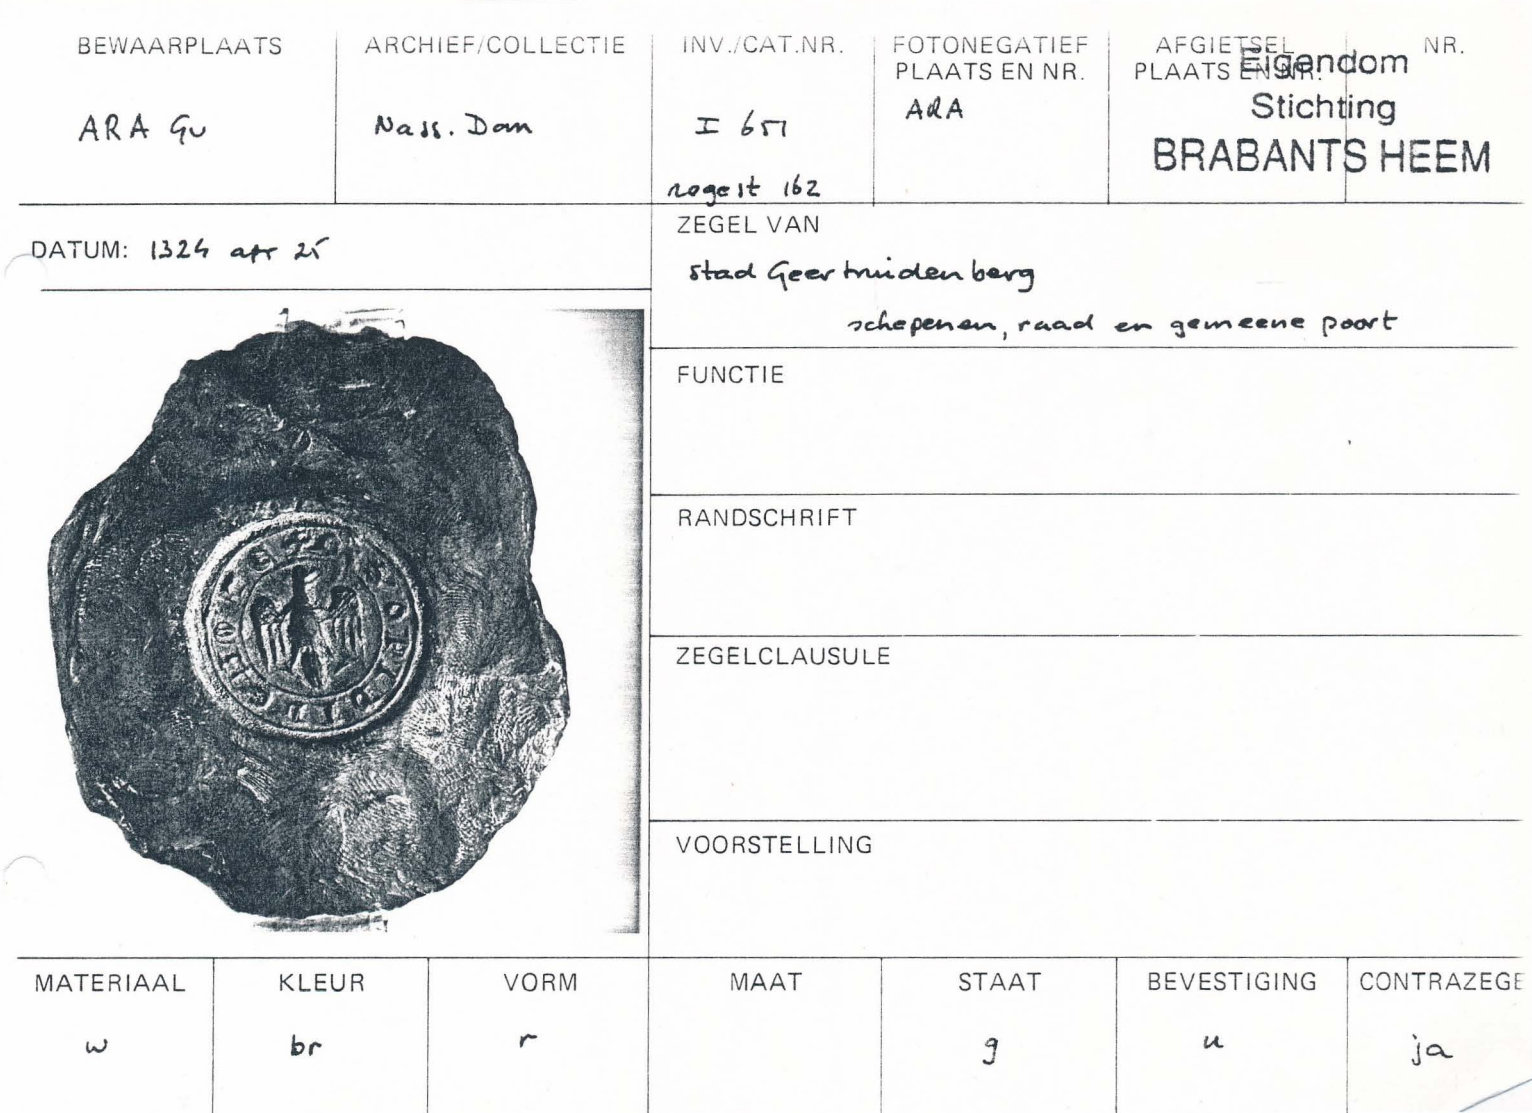 BEWAARPLAATS
ARA Gv
ARCHIEF/COLLECTIE
Nass. Dom
INV./CAT.NR.
I 651
regest 162
FOTONEGATIEF
PLAATS EN NR.
ARA
AFGIETSEL
PLAATS EN NR.
NR.
Eigendom
Stichting
BRABANTS HEEM
DATUM: 1324 apr 25
ZEGEL VAN
stad Geertruidenberg
schepenen, raad en gemeene poort
FUNCTIE
RANDSCHRIFT
ZEGELCLAUSULE
VOORSTELLING
MATERIAAL
w
KLEUR
br
VORM
r
MAAT
STAAT
g
BEVESTIGING
u
CONTRAZEGE
ja